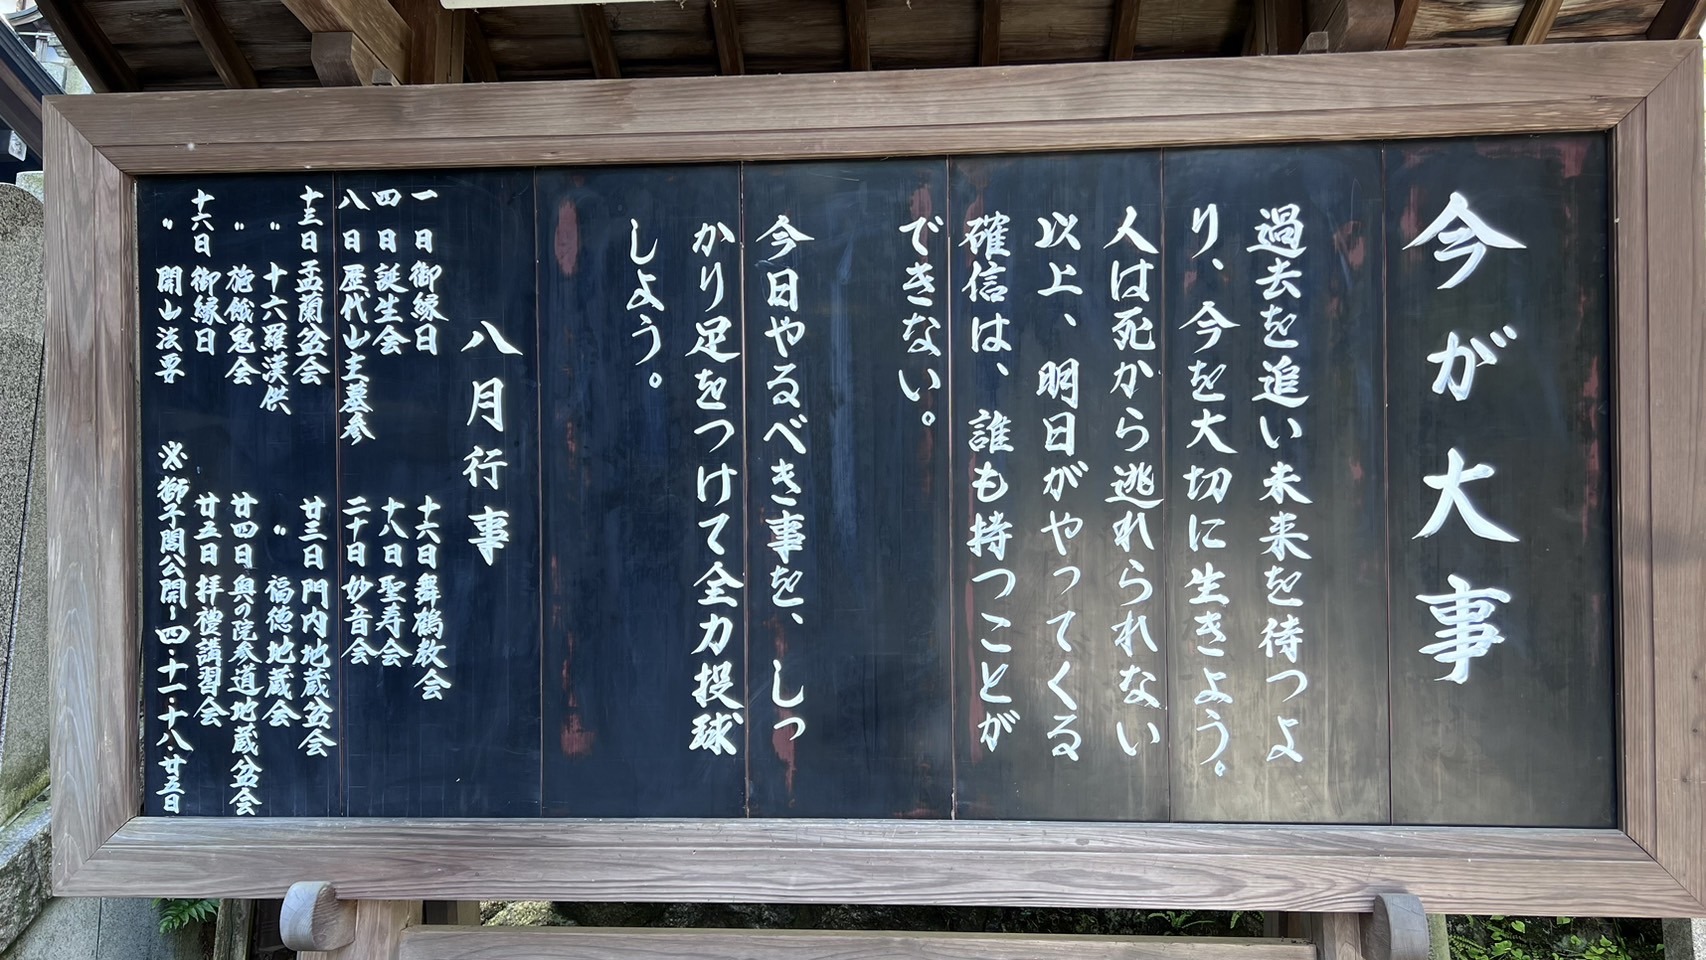 今が大事
過去を追い未来を待つよ
り、今を大切に生きよう。
人は死から逃れられない
以上、明日がやってくる
確信は、誰も持つことが
できない。
今日やるべき事を、しっ
かり足をつけて全力投球
しよう。
八月行事
一日御縁日
四日誕生会
八日歴代山主墓参
十三日盂蘭盆会
〃十六羅漢供
〃施餓鬼会
十六日御縁日
〃開山法要
十六日舞鶴教会
十八日聖寿会
二十日妙音会
廿三日門内地蔵盆会
〃福徳地蔵会
廿四日奥の院参道地蔵盆会
廿五日拝禮講習会
※獅子閣公開〜四・十一・十八・廿五日